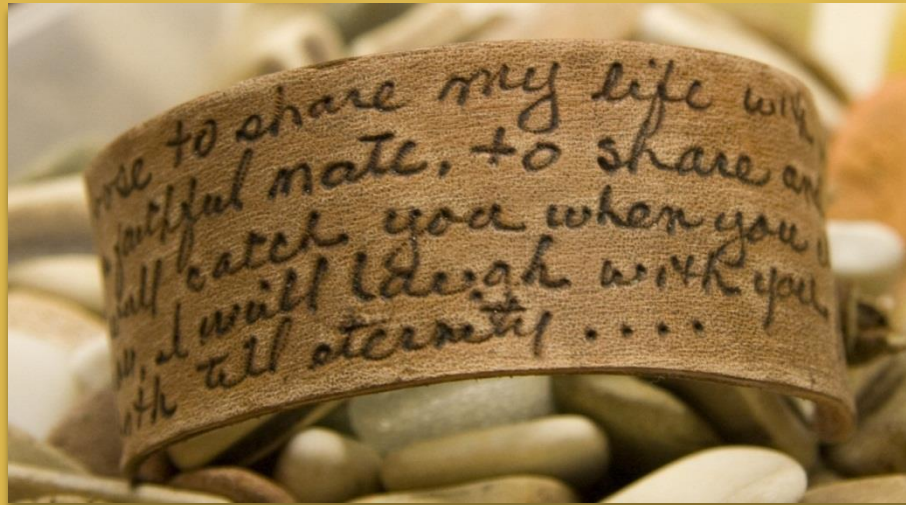 to share my life with
faithful mate, to share and
catch you when you
I will laugh with you,
till eternity ....